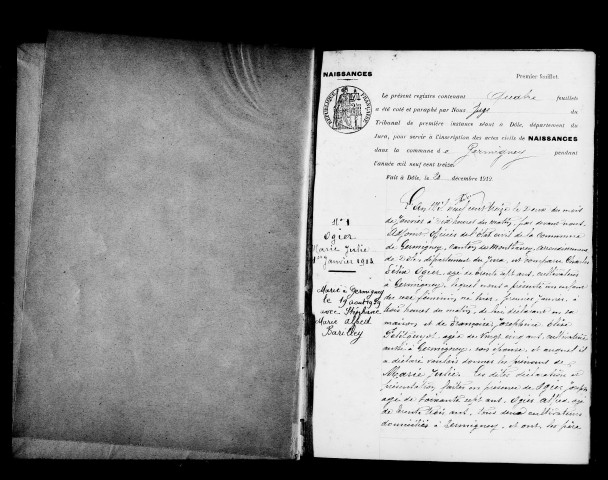 NAISSANCES
Premier feuillet.
RÉPUBLIQUE FRANÇAISE
Le présent registre contenant quatre feuillets
a été coté et paraphé par Nous Juge du
Tribunal de première instance séant à Dôle, département du
Jura, pour servir à l'inscription des actes civils de NAISSANCES
dans la commune de Germigney pendant
l'année mil neuf cent treize.
Fait à Dôle, le décembre 1912.
N° 1
Ogier
Marie Julie
1er Janvier 1913
Marié à Germigney
le 19 août 1939
avec Stéphane
Marie Albert
Barilley
L'an Mil neuf cent treize le deux du mois
de Janvier à heures du matin, par devant nous
officier de l'état civil de la commune
de Germigney, canton de Montbarrey, arrondissement
de Dôle département du Jura, est comparu Charles
Ogier, agé de trente sept ans, cultivateur
à Germigney, lequel nous a présenté un enfant
du sexe féminin, né hier, premier janvier, à
trois heures du matin, de lui déclarant en sa
maison et de Françoise Joséphine
agée de vingt ans, cultivatrice
à Germigney, son épouse, et auquel il
a déclaré vouloir donner les prénoms de
Marie Julie. Les dites déclaration et
présentation faites en présence de Ogier Joseph
agé de soixante sept ans, Ogier Alfred, agé
de trente trois ans, tous deux cultivateurs
domiciliés à Germigney, et ont, les père